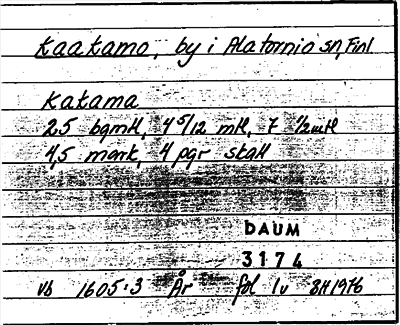 Kaakamo, by i Alatornio sn, Finl
Kakama
25 bgmtl, 4 5/12 mtl, 7 1/2 mtl
4,5 mark, 4 pgr skatt
DAUM
3174
Vb 1605:3 År fol 1v BH 1976